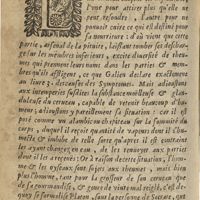 l'une pour attirer plus qu'elle ne
peut resoudre, l'autre pour ne
pouuoir cuire ce qui est destiné pour
sa nourriture: d'où vient que cette
partie, arsenal de la pituite, laissant tomber ses desluxi-
sur les membres inferieurs, excite diuersité de rheu-
mes qui prennent leurs noms dans les parties & mem-
bres qu'ils affligent, ce que Galien declare exactement
au liure 3. des causes des Symptomes. Mais adioustons
aux intemperies susdites la substance molleuse & glan-
duleuse du cerueau, capable de retenir beaucoup d'hu-
meur; adioustons y pareillement sa situation: car il est
posé comme vn alambic ou chapiteau sur la fumiere du
corps, duquel il reçoit quantité de vapeurs dont il s'hu-
mecte & imbibe de telle sorte qu'apres il est contraint
les ayant changées en eau, de les renuoyer aux parties
dont il les a receuës: Or à raison de cette situation, l'hom-
me & les oyseaux sont sujets aux rheumes, mais bien
plus l'homme, tant pour la grosseur de son cerueau que
de sa gourmandise, & genre de viure mal reiglé, c'est de-
quoy se formalise Platon, sous la personne de Socrate, que